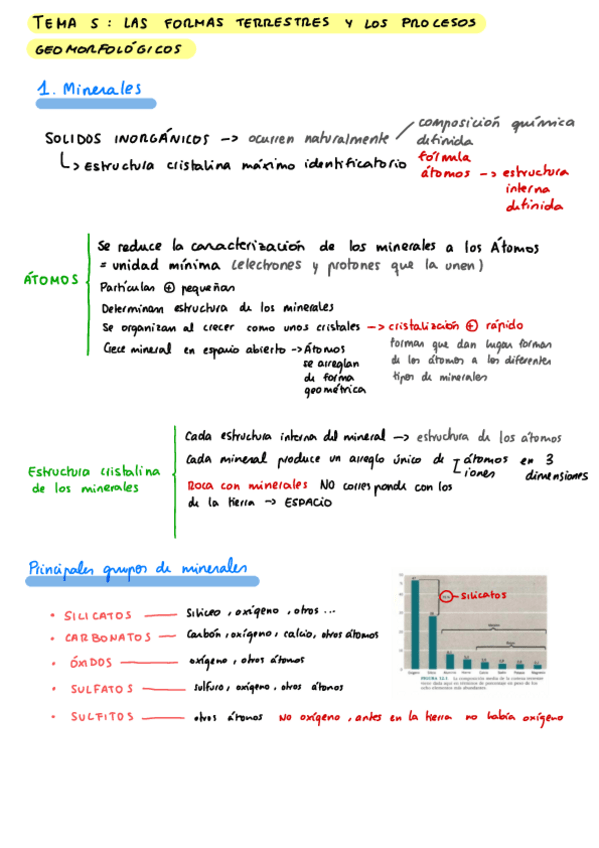 TEMA 5: LAS FORMAS TERRESTRES Y LOS PROCESOS
GEOMORFOLÓGICOS
1. Minerales
SOLIDOS INORGÁNICOS -> ocurren naturalmente / composición química
definida
↳ Estructura cristalina máximo identificatorio
fórmula
átomos -> estructura
interna
definida
ÁTOMOS
Se reduce la caracterización de los minerales a los Átomos
= unidad mínima (electrones y protones que la unen)
Partículas ⊕ pequeñas
Determinan estructura de los minerales
Se organizan al crecer como unos cristales -> cristalización ⊕ rápido
formas que dan lugar forman
de los átomos a los diferentes
tipos de minerales
Crece mineral en espacio abierto -> Átomos
se arreglan
de forma
geométrica
Estructura cristalina
de los minerales
Cada estructura interna del mineral -> estructura de los átomos
Cada mineral produce un arreglo único de [ átomos en 3
iones dimensiones
Roca con minerales NO corresponde con los
de la tierra -> ESPACIO
Principales grupos de minerales
• SILICATOS — Siliceo, oxígeno, otros ...
• CARBONATOS — Carbón, oxígeno, calcio, otros átomos
• ÓXIDOS — oxígeno, otros átomos
• SULFATOS — sulfuro, oxígeno, otros átomos
• SULFITOS — otros átomos No oxígeno, antes en la tierra no había oxígeno
silicatos
Oxígeno Silicio Aluminio Hierro Calcio Sodio Potasio Magnesio
FIGURA 12.1. La composición media de la corteza terrestre
viene dada aquí en términos de porcentaje en peso de los
ocho elementos más abundantes.